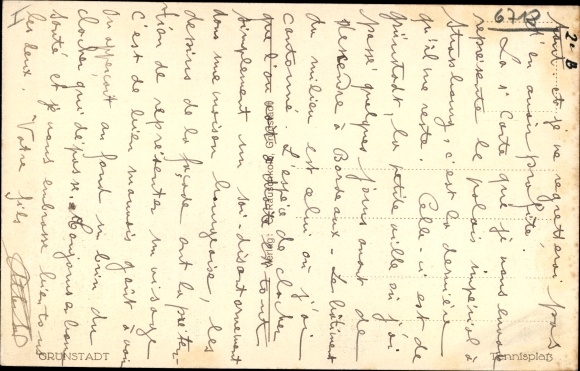 6712
2e B
tout et je ne regretterai pas
d'en avoir profité.
La 1e Carte que je vous envoie
représente le palais impérial à
Strasbourg, c'est la dernière
qu'il me reste. Celle ci est de
Grünstadt, la petite ville où j'ai
passé quelques jours avant de
descendre à Bordeaux - Le bâtiment
du milieu est celui où j'ai
cantonné. L'espèce de clocher
que l'on voit à droite est tout
simplement un soi-disant ornement
dans une maison bourgeoise, les
dessins de la façade ont la préten-
tion de représenter un visage
c'est de bien mauvais goût à voir
On aperçoit au fond un bout du
clocher qui dépasse.
santé et je vous embrasse bien tous
les deux. Votre fils
GRÜNSTADT
Tennisplatz